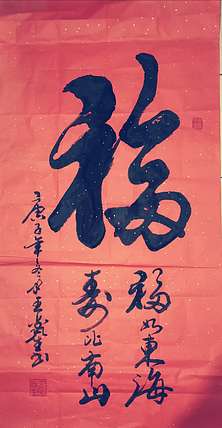 福
福如東海
寿比南山
庚子年冬月王